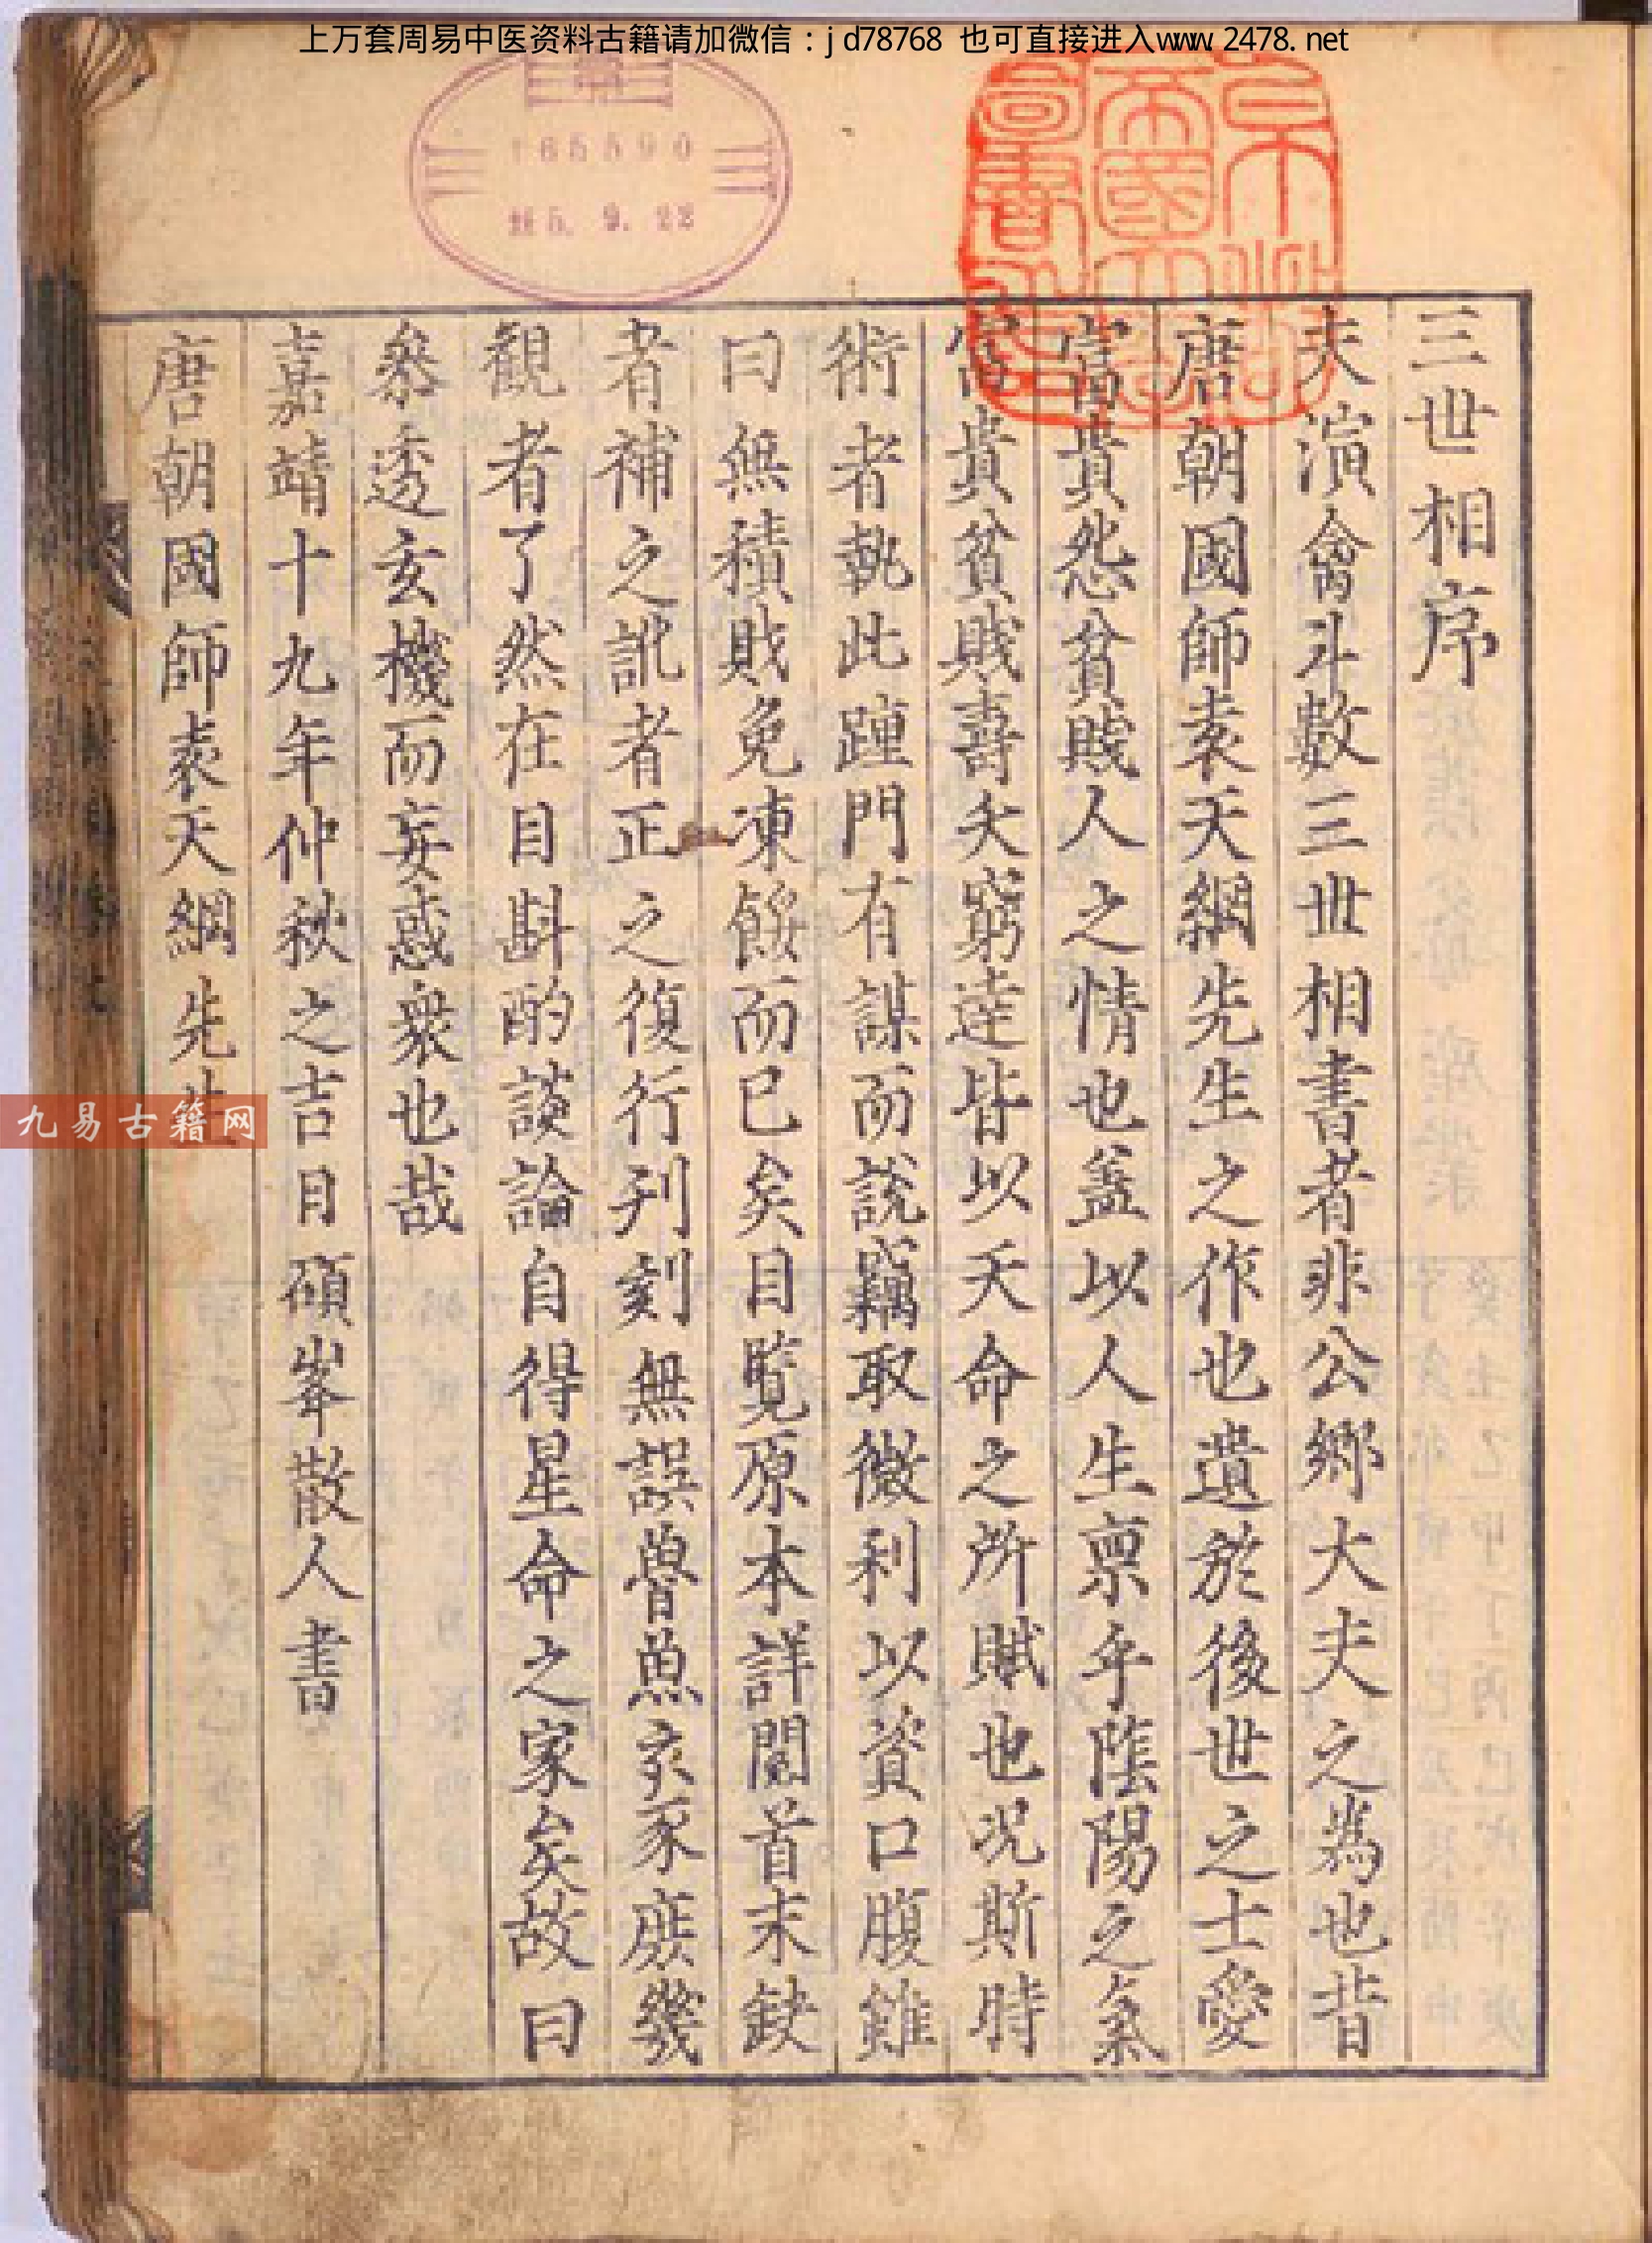 上万套周易中医资料古籍请加微信：jd78768 也可直接进入www.2478.net
165590
5. 9. 22
三世相序
夫演禽斗數三世相書者非公鄉大夫之為也昔
唐朝國師袁天綱先生之作也遺於後世之士愛
富貴怨貧賤人之情也盖以人生禀乎陰陽之氣
富貴貧賎壽夭窮達皆以天命之所賦也况斯時
術者執此踵門有謀而說竊取微利以資口腹雖
曰無積賍免凍餒而已矣目覧原本詳閱首末缺
者補之訛者正之復行刋刻無誤魯魚亥豕庶幾
觀者了然在目斟酌談論自得星命之家矣故曰
叅透玄機而妄惑衆也哉
嘉靖十九年仲秋之吉日碩峯散人書
唐朝國師袁天綱先生
九易古籍网